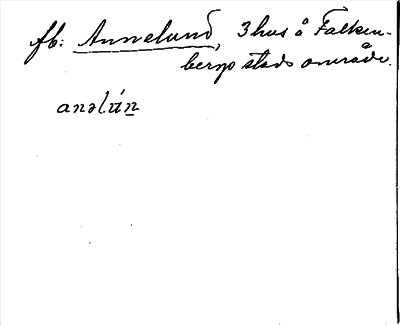 fb: Annelund, 3 hus å Falken-
bergs stads område.
anəlún